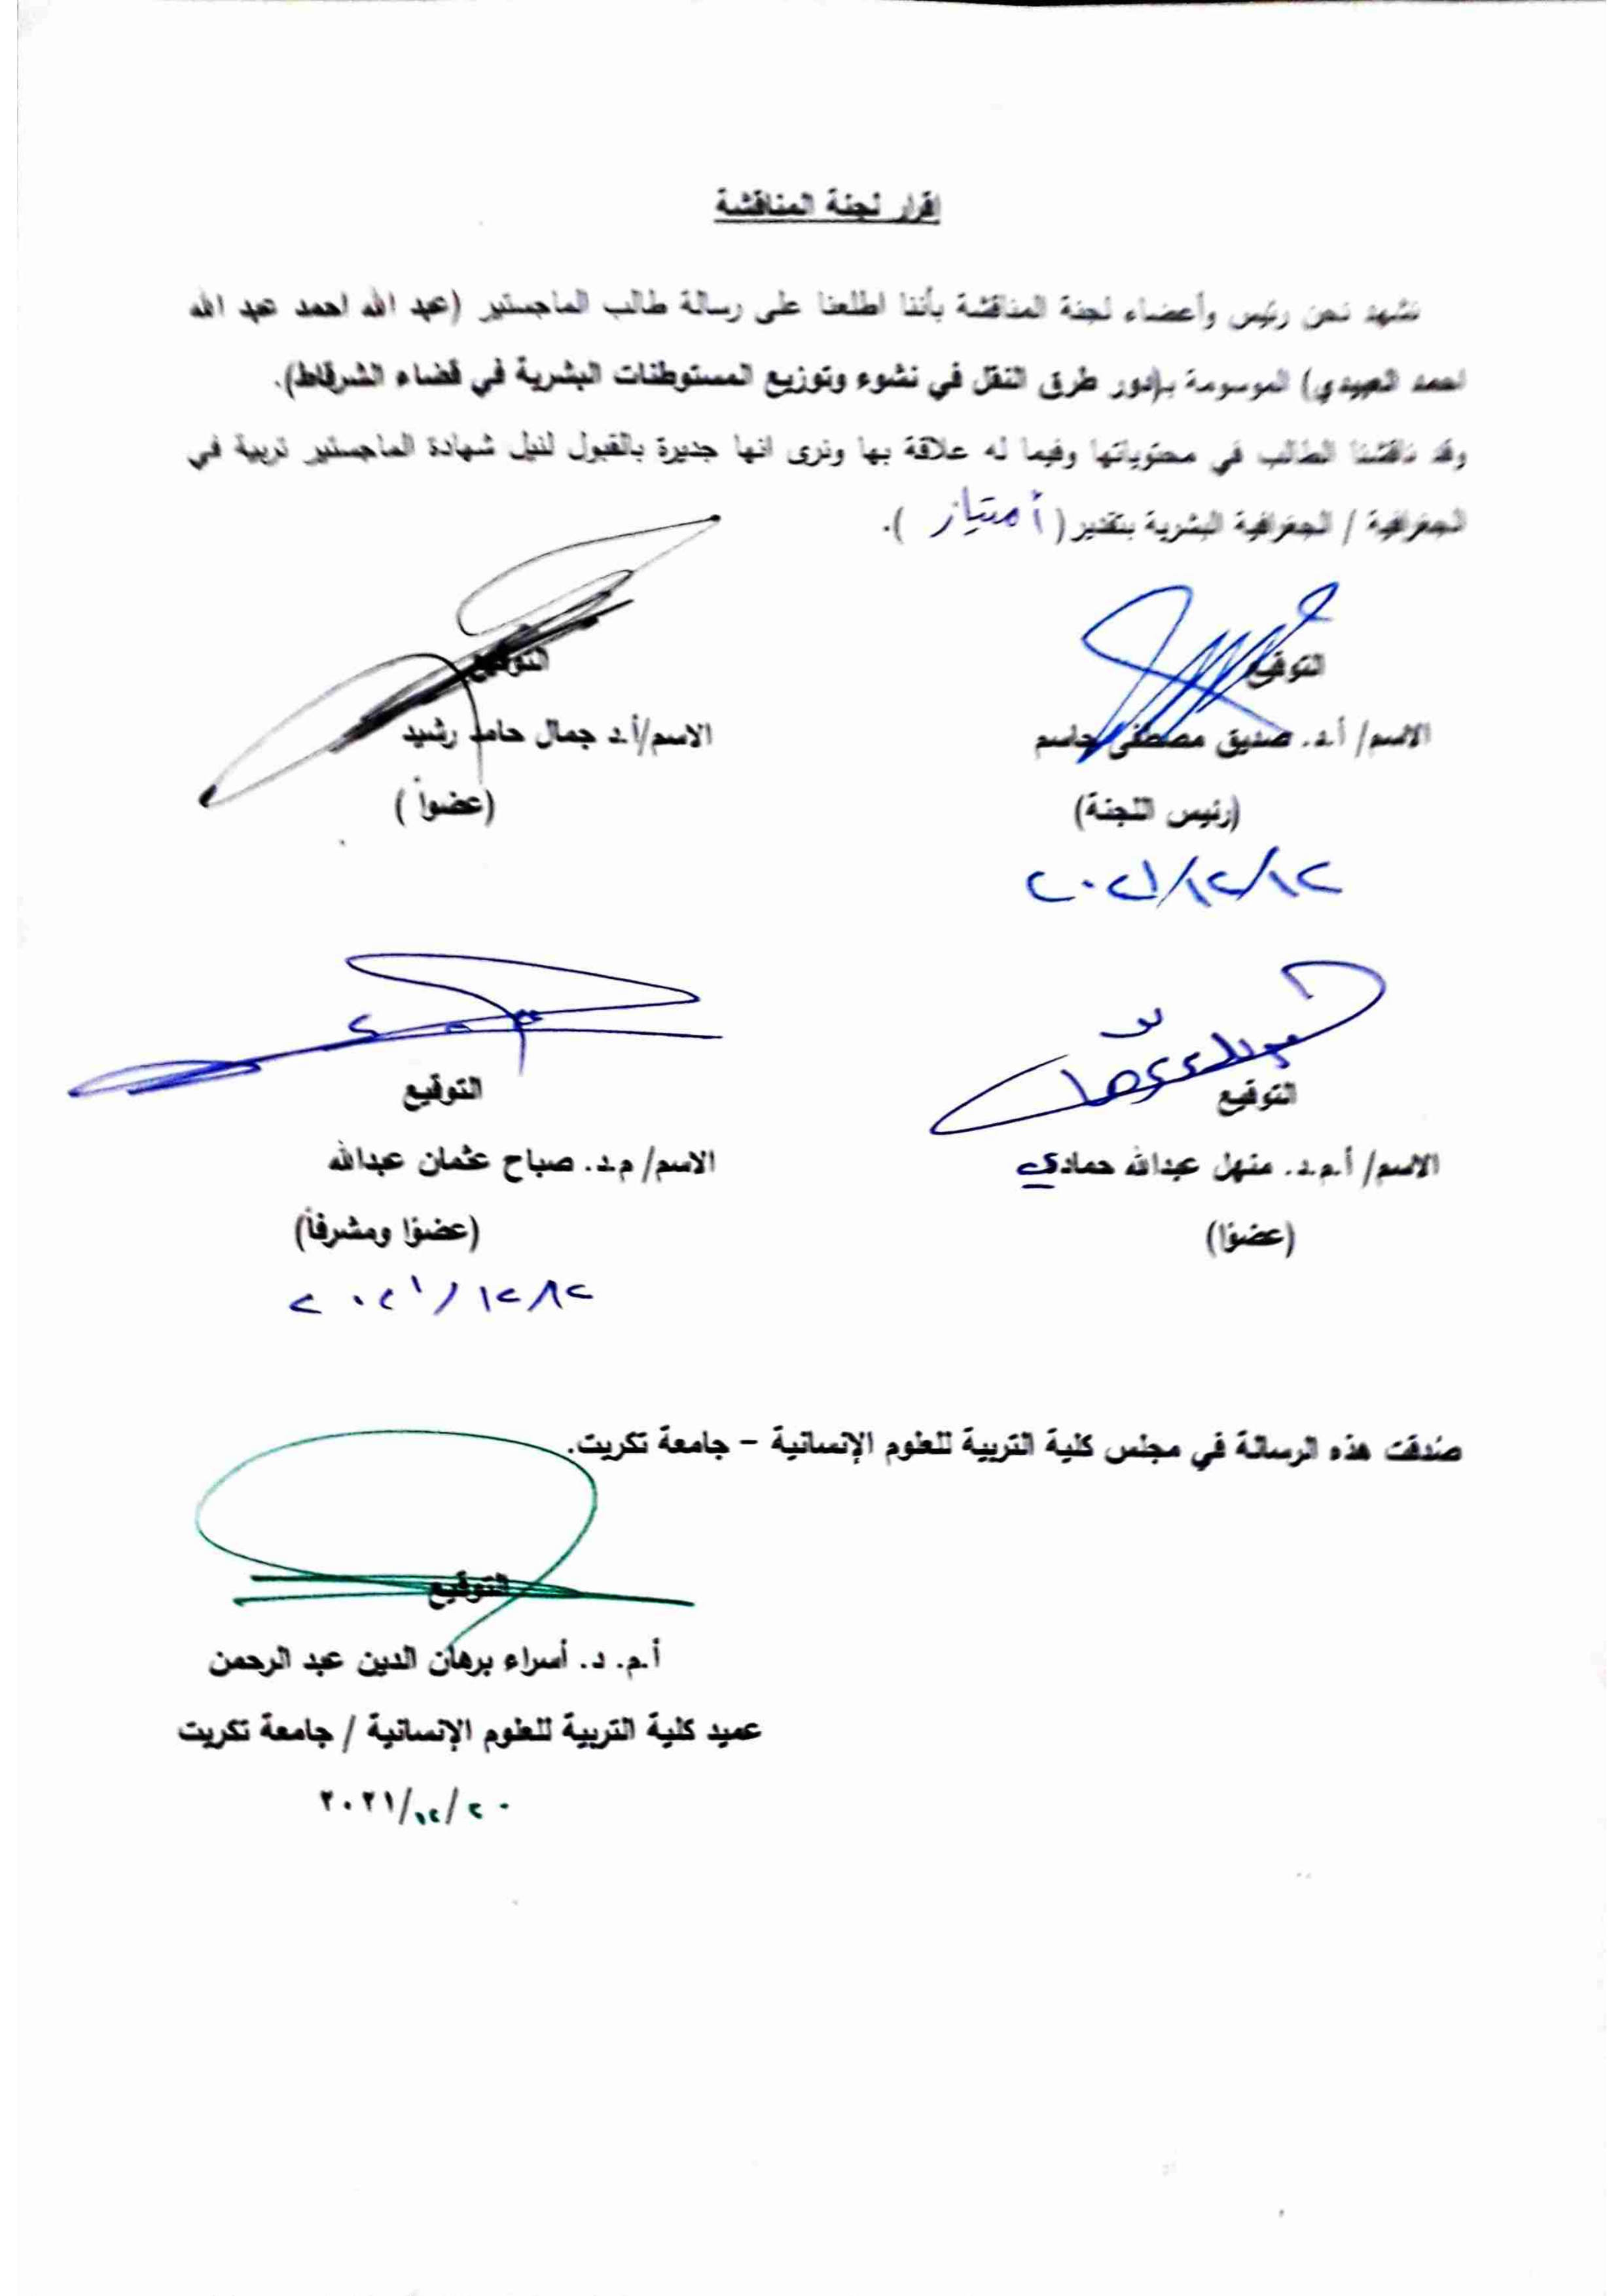 اقرار لجنة المناقشة
نشهد نحن رئيس وأعضاء لجنة المناقشة بأننا اطلعنا على رسالة طالب الماجستير (عبد الله احمد عبد الله
احمد العبيدي) الموسومة بـ(دور طرق النقل في نشوء وتوزيع المستوطنات البشرية في قضاء الشرقاط).
وقد ناقشنا الطالب في محتوياتها وفيما له علاقة بها ونرى انها جديرة بالقبول لنيل شهادة الماجستير تربية في
الجغرافية / الجغرافية البشرية بتقدير ( أمتياز ).
التوقيع
الاسم/ أ.د. صديق مصطفى جاسم
(رئيس اللجنة)
٢٠٢١/١٢/١٢
التوقيع
الاسم/أ.د جمال حامد رشيد
(عضواً )
التوقيع
الاسم/ أ.م.د. منهل عبدالله حمادي
(عضوًا)
التوقيع
الاسم/ م.د. صباح عثمان عبدالله
(عضوًا ومشرفاً)
٢٠٢١/١٢/١٢
صُدقت هذه الرسالة في مجلس كلية التربية للعلوم الإنسانية – جامعة تكريت.
التوقيع
أ.م. د. أسراء برهان الدين عبد الرحمن
عميد كلية التربية للعلوم الإنسانية / جامعة تكريت
٢٠٢١/١٢/٢٠